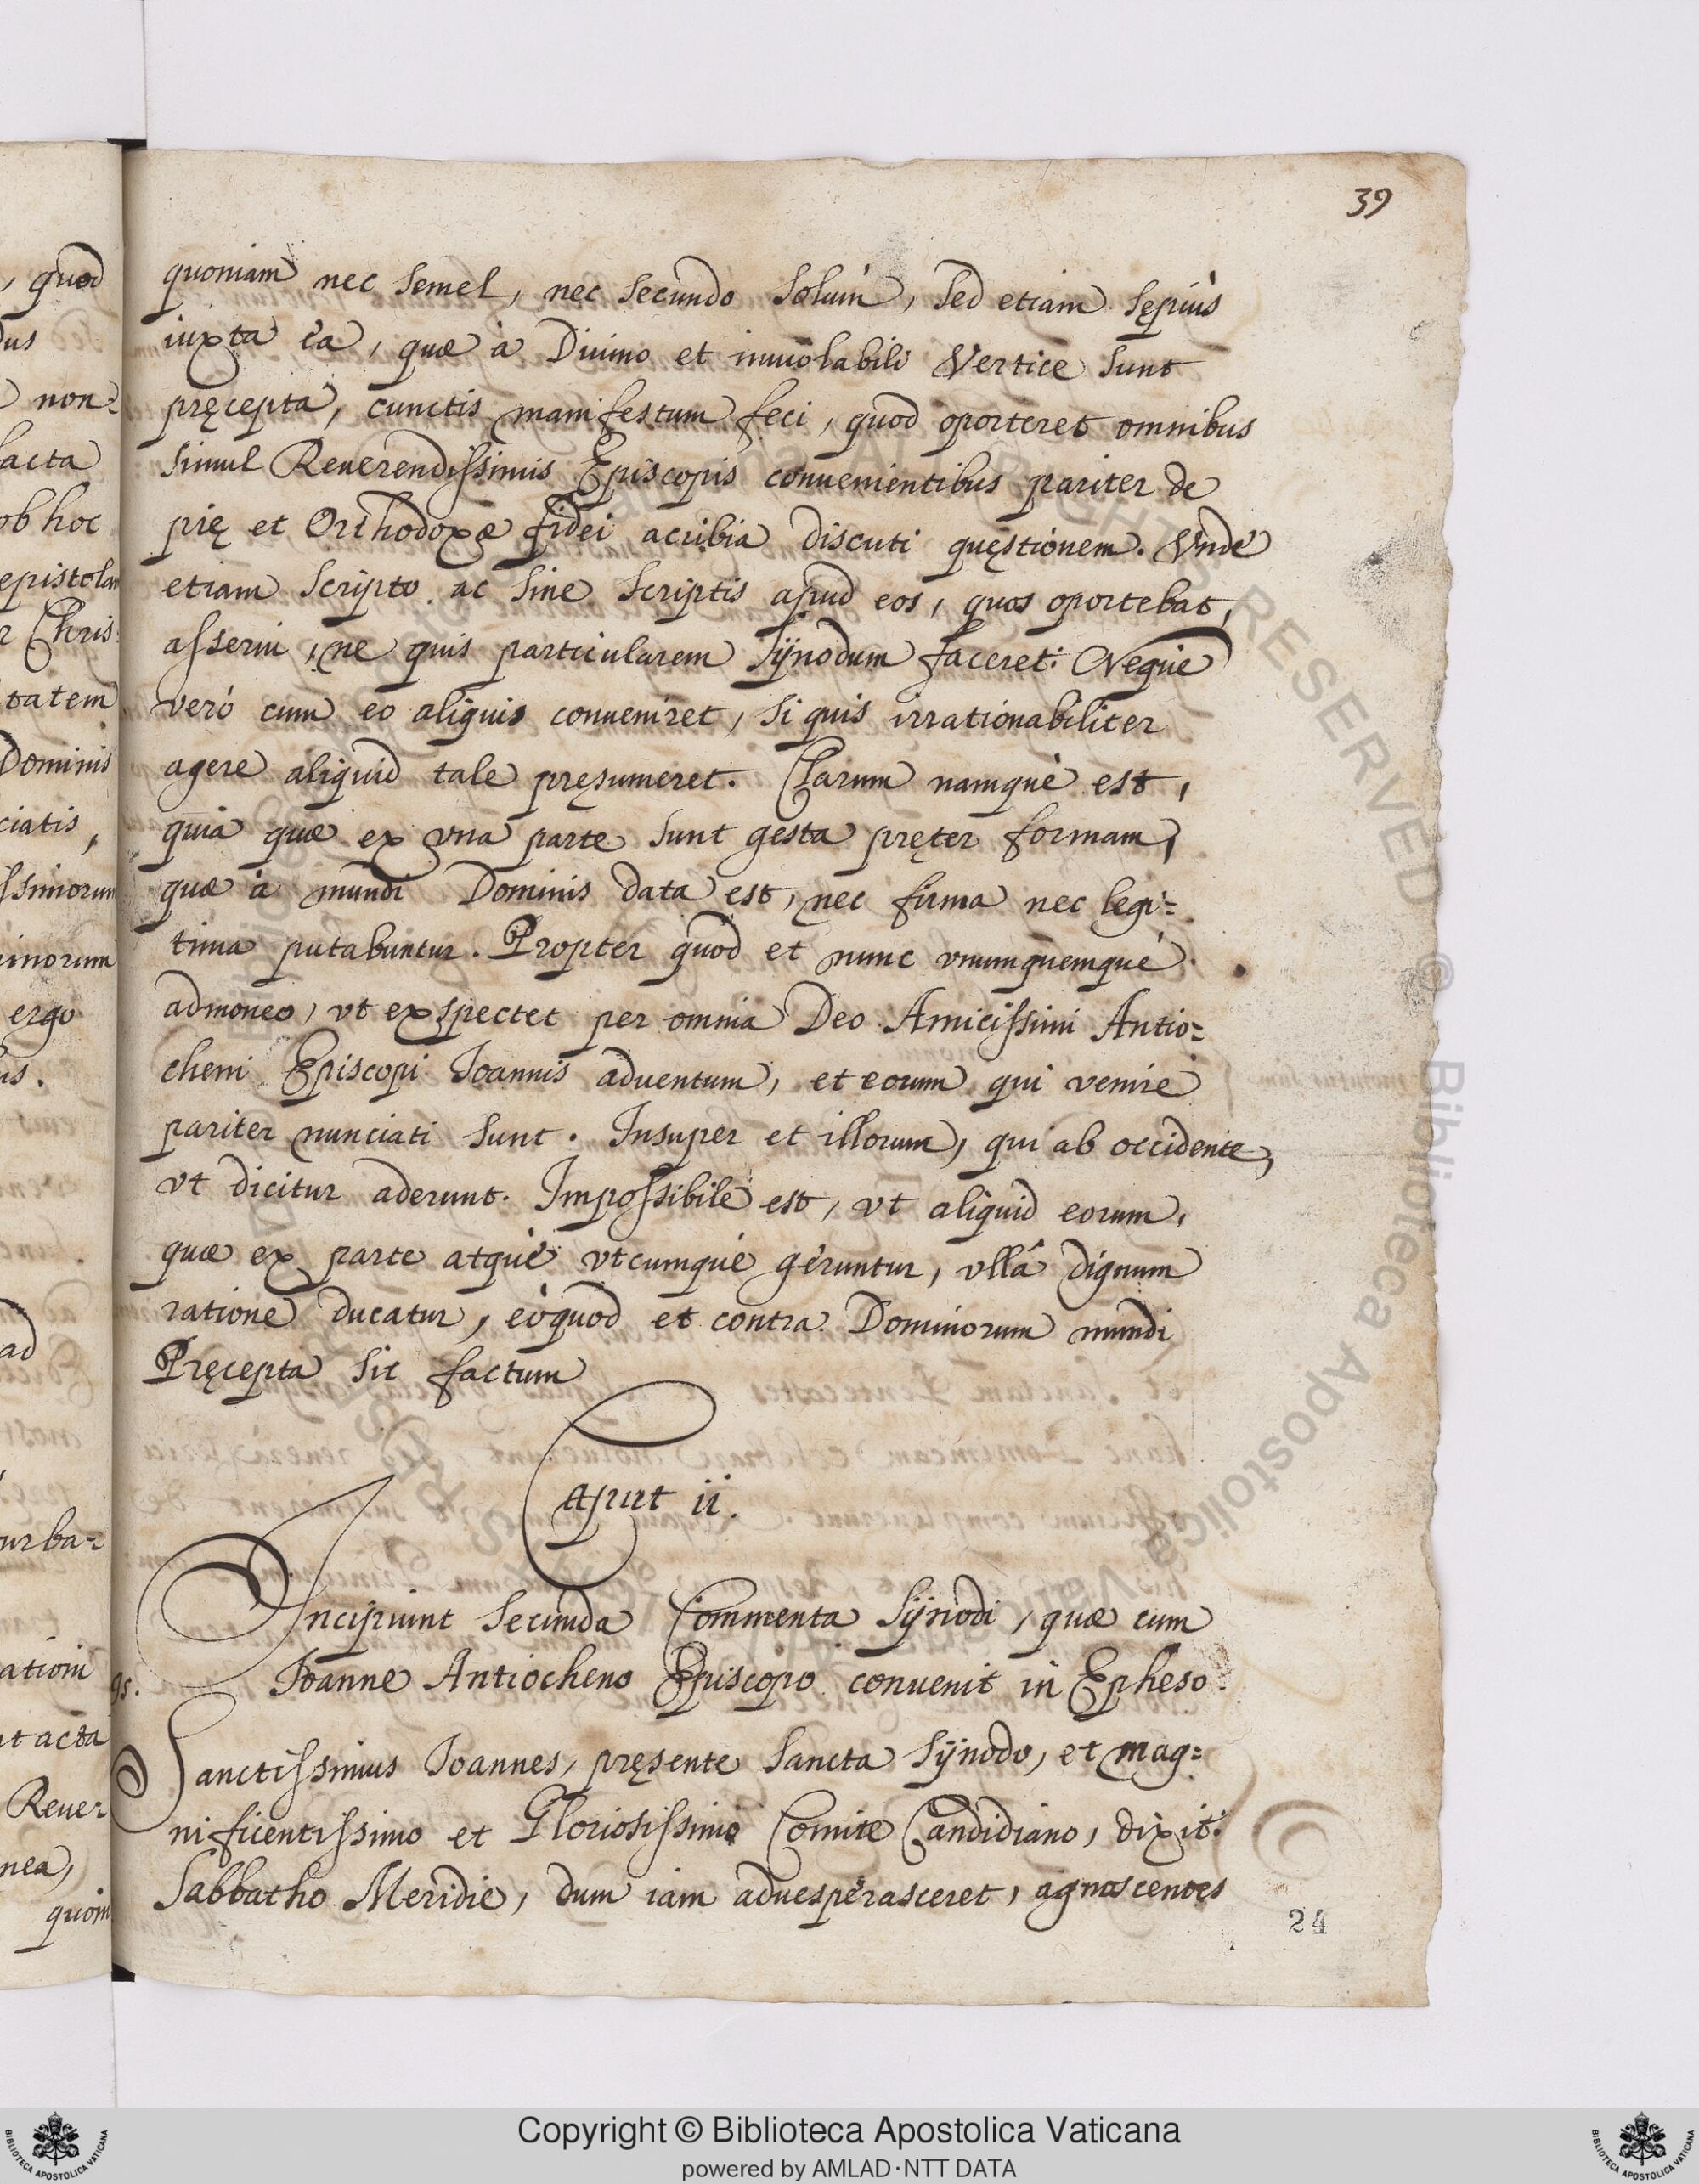 39
quoniam nec semel, nec secundo solùm, sed etiam sępiùs
iuxta ea, quæ à Diuino et inuiolabili Vertice sunt
pręcepta, cunctis manifestum feci, quod oporteret omnibus
simul Reuerendissimis Episcopis conuenientibus pariter de
pię et Orthodoxæ fidei acribia discuti quęstionem. Vnde
etiam scripto ac sine scriptis apud eos, quos oportebat,
asserui, ne quis particularem Sÿnodum faceret: Neque
verò cum eo aliquis conueniret, si quis irrationabiliter
agere aliquid tale pręsumeret. Clarum namquè est,
quia quæ ex vna parte sunt gesta pręter formam,
quæ à mundi Dominis data est, nec firma nec legi=
tima putabuntur. Propter quod et nunc vnumquemquè
admoneo, vt exspectet per omnia Deo Amicissimi Antio=
cheni Episcopi Ioannis aduentum, et eorum qui venire
pariter nunciati sunt. Insuper et illorum, qui ab occidente,
vt dicitur aderunt. Impossibile est, vt aliquid eorum,
quæ ex parte atquè vtcumquè geruntur, vllâ dignum
ratione ducatur, eòquod et contra Dominorum mundi
Pręcepta sit factum
Caput ii.
Incipiunt secunda Commenta Sÿnodi, quæ cum
Ioanne Antiocheno Episcopo conuenit in Epheso.
Sanctissimus Ioannes, pręsente Sancta Sÿnodo, et mag=
nificentissimo et Gloriosissimo Comite Candidiano, dixit:
Sabbatho Meridie, dum iam aduesperasceret, agnoscentes
24
, quod
dus
non=
facta
ob hoc
epistolam
Chris=
tatem
Dominis
ciatis,
ssimorum
ergo
ad
urba=
ationi
t acta
Reuer=
nea,
quoni
Copyright © Biblioteca Apostolica Vaticana
powered by AMLAD·NTT DATA
BIBLIOTECA APOSTOLICA VATICANA
BIBLIOTECA APOSTOLICA VATICANA